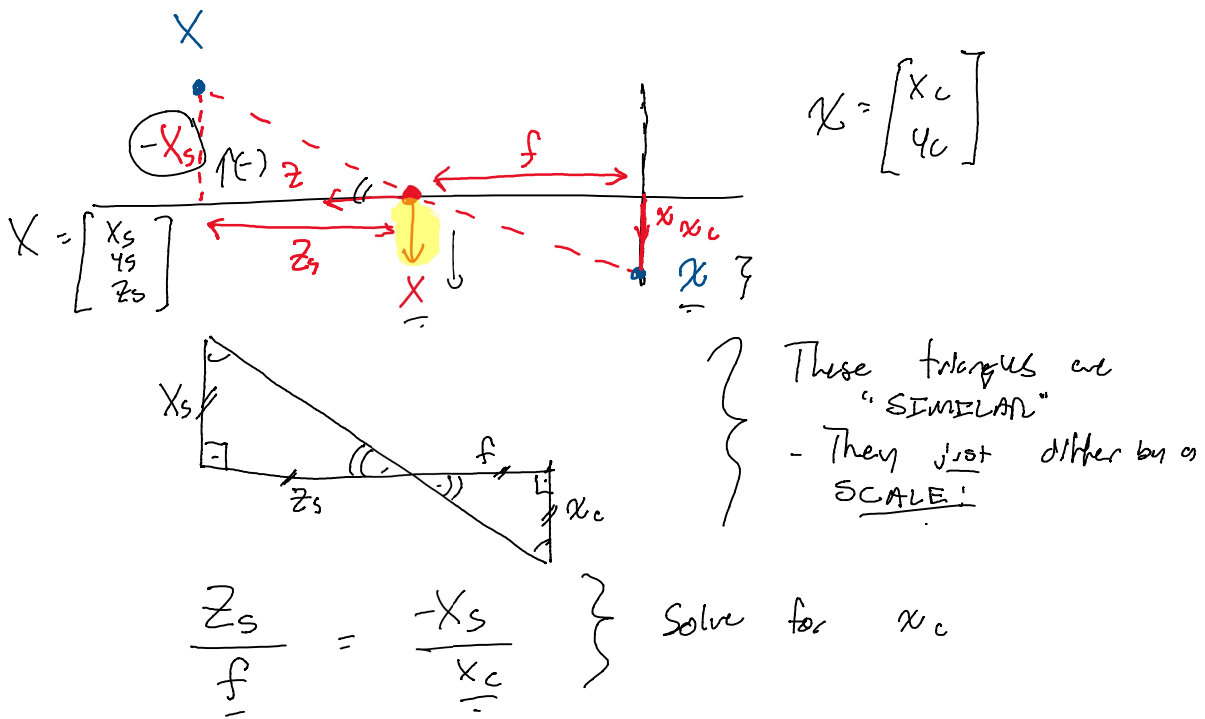 X
-Xs
↑(-)
z
f
Zs
X
x
xc
x }
X = [xs
ys
zs]
x = [xc
yc]
Xs
Zs
f
xc
These triangles are
"SIMILAR"
- They just differ by a
SCALE!
Zs/f = -Xs/xc } Solve for xc